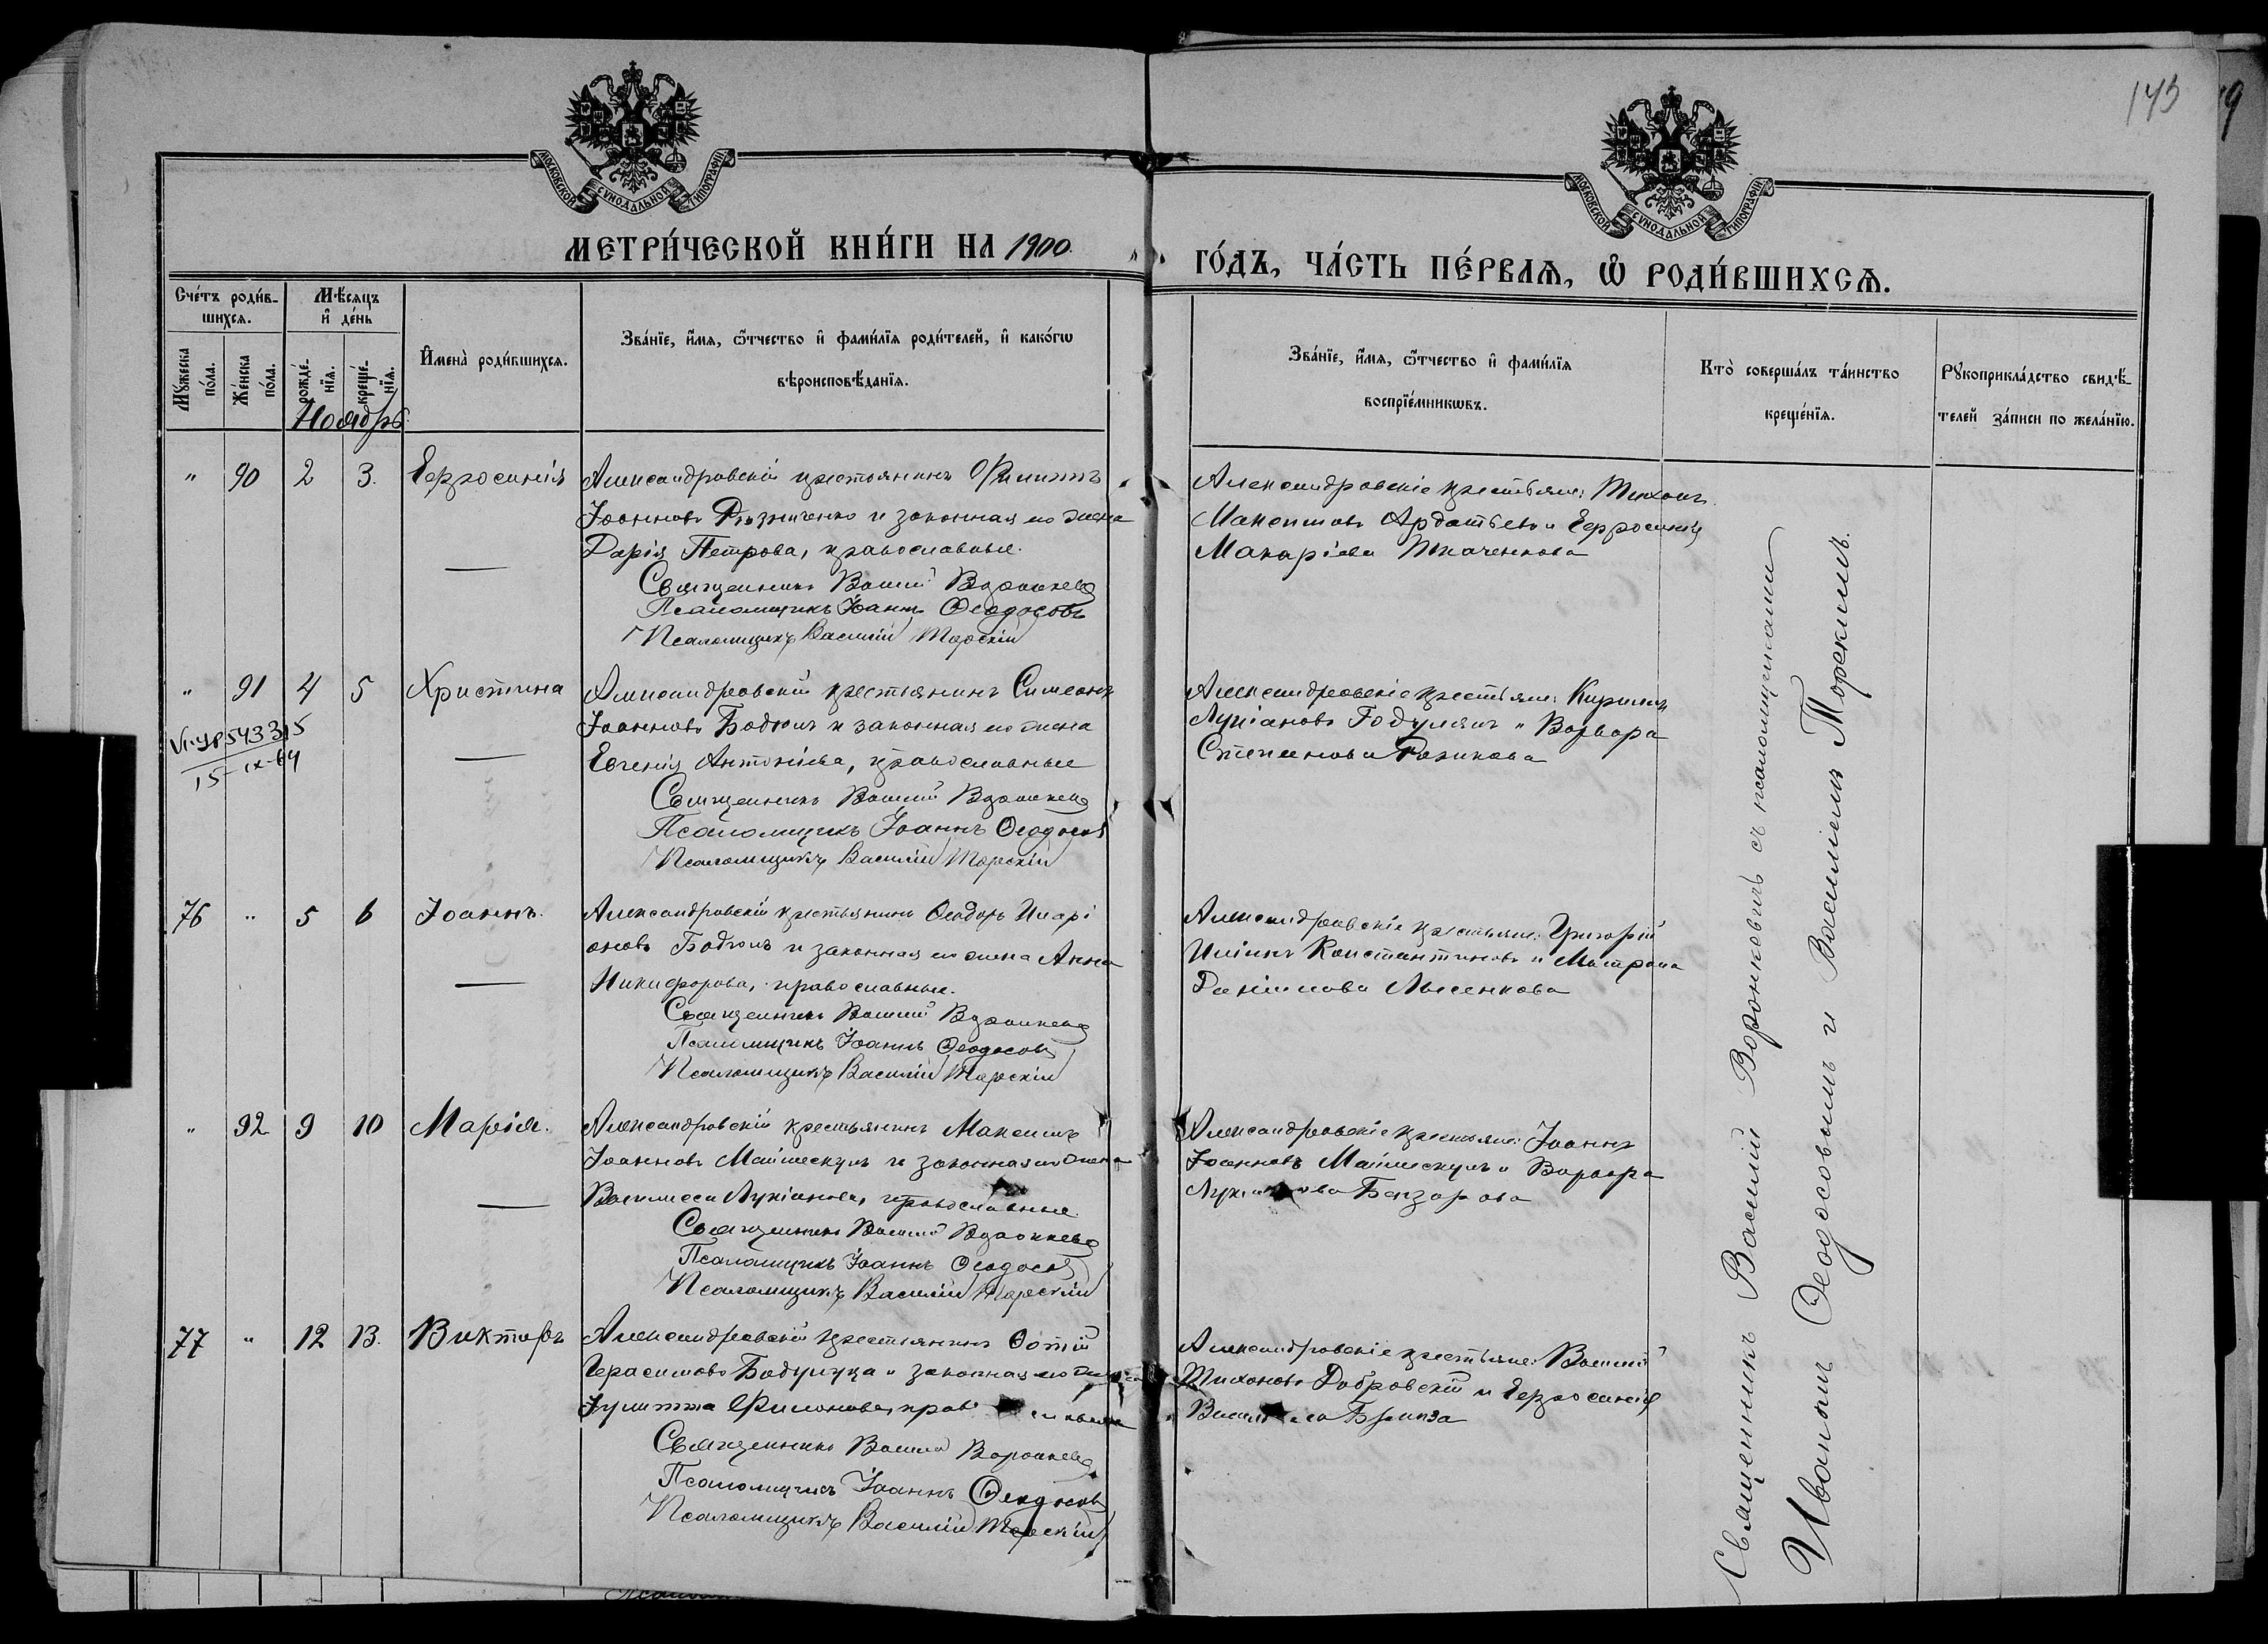 143
МОСКОВСКОЙ СУНОДАЛЬНОЙ ТИПОГРАФІИ
МОСКОВСКОЙ СУНОДАЛЬНОЙ ТИПОГРАФІИ
МЕТРИ́ЧЕСКОЙ КНИ́ГИ НА 1900
ГО́ДЪ, ЧА́СТЬ ПЕ́РВАѦ, Ѿ РОДИ́ВШИХСѦ.
Сче́тъ роди́в-
шихсѧ.
Мꙋжеска
по́ла.
Же́нска
по́ла.
Мѣ́сѧцъ
и҆ де́нь
рожде́-
нїѧ.
креще́-
нїѧ.
Ноябрь
И҆мена̀ роди́вшихсѧ.
Зва́нїе, и҆́мѧ, ѻ҆́тчество и҆ фами́лїѧ роди́телей, и҆ како́гѡ
вѣроисповѣ́данїѧ.
Зва́нїе, и҆́мѧ, ѻ҆́тчество и҆ фами́лїѧ
воспрїе́мникѡвъ.
Кто̀ соверша́лъ та́инство
креще́нїѧ.
Рꙋкоприкла́дство свидѣ́-
телей за́писи по жела́нїю.
" 90 2 3. Евфросинія
Александровскій крестьянинъ Филиппъ
Іоанновъ Рѣзниченко и законная его жена
Дарія Петрова, православные.
Священникъ Василій Воронкевъ
Псаломщикъ Іоаннъ Ѳеодосовъ
Псаломщикъ Василій Торскій
Александровскіе крестьяне: Тихонъ
Максимовъ Ардатьевъ и Евфросинія
Макаріева Ткаченкова
" 91 4 5 Христина
543315
15-IX-64
Александровскій крестьянинъ Симеонъ
Іоанновъ Бодюлъ и законная его жена
Евгенія Антоніева, православные
Священникъ Василій Воронкевъ
Псаломщикъ Іоаннъ Ѳеодосовъ
Псаломщикъ Василій Торскій
Александровскіе крестьяне: Кириллъ
Лукіановъ Годулянъ и Варвара
Степанова
76 " 5 6 Іоаннъ.
Александровскій крестьянинъ Ѳеодоръ Иларі
оновъ Бодюлъ и законная его жена Анна
Никифорова, православные.
Священникъ Василій Воронкевъ
Псаломщикъ Іоаннъ Ѳеодосовъ
Псаломщикъ Василій Торскій
Александровскіе крестьяне: Григорій
Иліинъ Константиновъ и Матрона
Даніилова Лысенкова
" 92 9 10 Марія.
Александровскій крестьянинъ Максимъ
Іоанновъ Маймескулъ и законная его жена
Василисса Лукіанова, православные.
Священникъ Василій Воронкевъ
Псаломщикъ Іоаннъ Ѳеодосовъ
Псаломщикъ Василій Торскій
Александровскіе крестьяне: Іоаннъ
Іоанновъ Маймескулъ и Варвара
Базарова
77 " 12 13. Викторъ
Александровскій крестьянинъ Фотій
Герасимовъ и законная его жена
Іулитта Филонова, православные
Священникъ Василій Воронкевъ
Псаломщикъ Іоаннъ Ѳеодосовъ
Псаломщикъ Василій Торскій
Александровскіе крестьяне: Василій
Тихоновъ Добровскій и Евфросинія
Священникъ Василій Воронкевъ съ псаломщиками
Иваномъ Ѳеодосовымъ и Василіемъ Торскимъ.